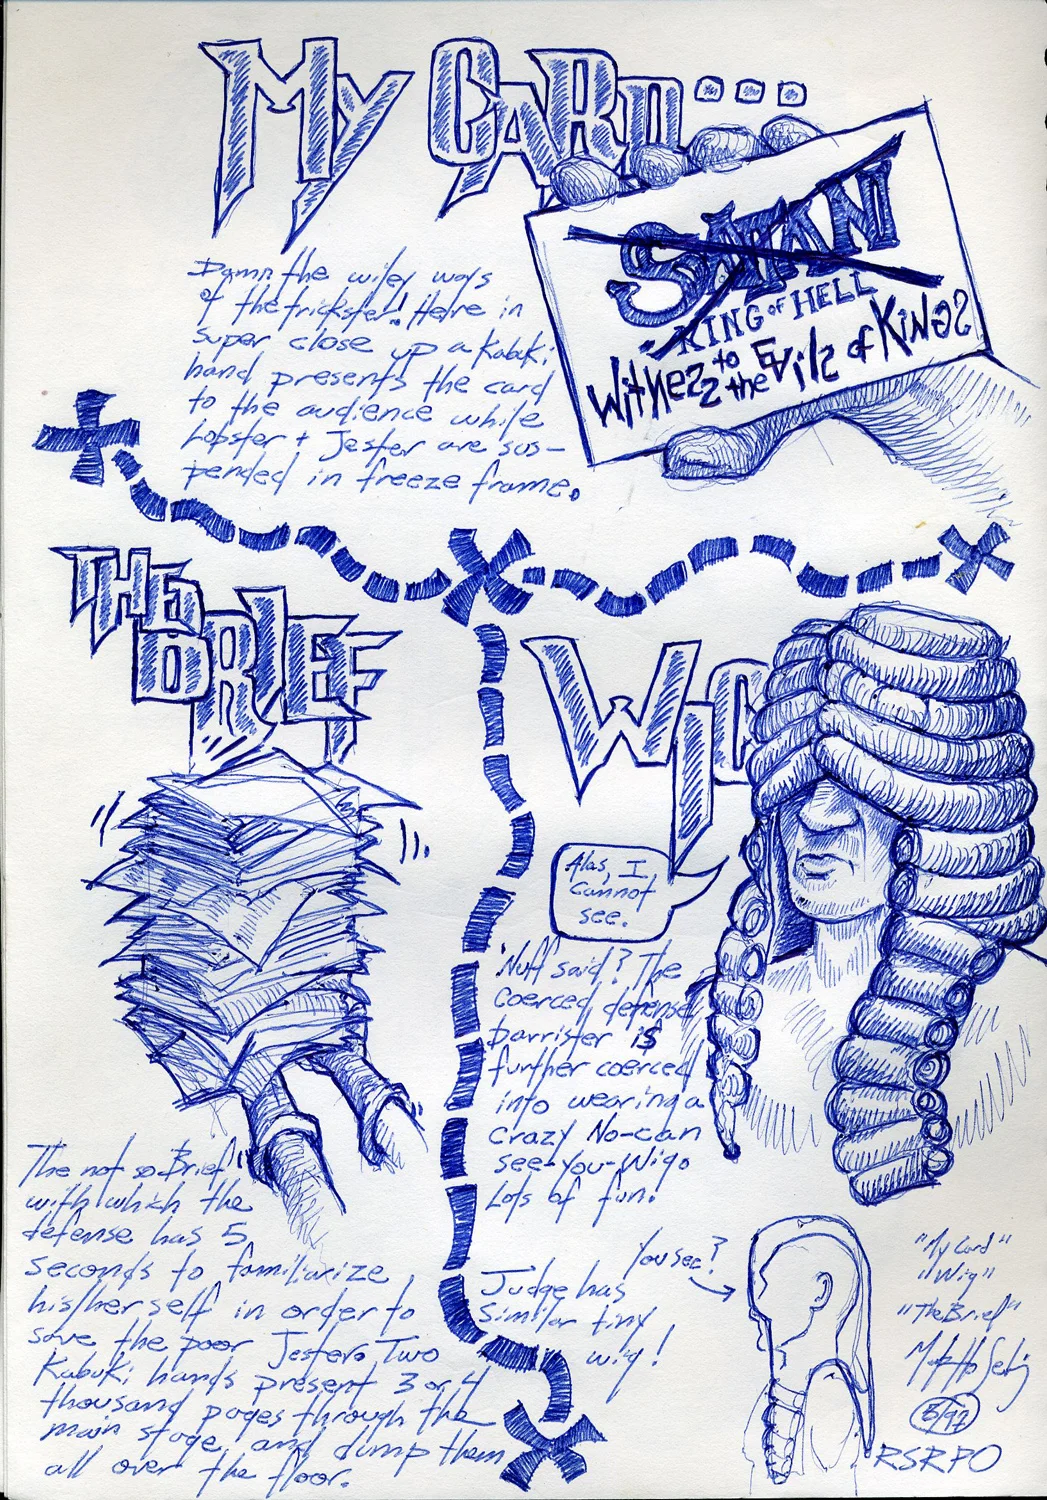 My CARD...
SATAN
KING OF HELL
WitNess to
the Evils of KiNGs
Damn the wiley ways
of the trickster! Here in
super close up a Kabuki
hand presents the card
to the audience while
Lobster + Jester are sus-
pended in freeze frame.
THE
BRIEF
The not so Brief
with which the
defense has 5
seconds to familiarize
his/herself in order to
save the poor Jester. Two
Kabuki hands present 3 or 4
thousand pages through the
main stage, and dump them
all over the floor.
WIG
Alas, I
cannot
see.
'Nuff said? The
coerced defense
barrister is
further coerced
into wearing a
crazy No-can
see-you-Wig.
Lots of fun!
You see?
Judge has
similar tiny
wig!
"My Card"
"Wig"
"The Brief"
5/92
RSRPO